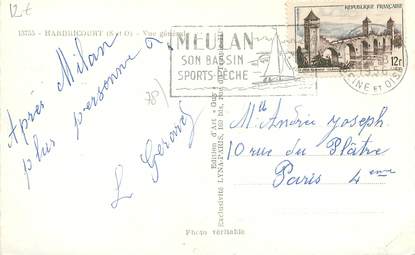 12€
13755 - HARDRICOURT (S.-et-O.) - Vue générale
MEULAN
SON BASSIN
SPORTS-PÊCHE
REPUBLIQUE FRANÇAISE
12f
SEINE ET OISE
Après Milan
plus personne
78
Gérard
Edition d'Art "Guy"
Exclusivité LYNA-PARIS,
Mlle Andrée Joseph
10 rue du Plâtre
Paris 4eme
Photo véritable